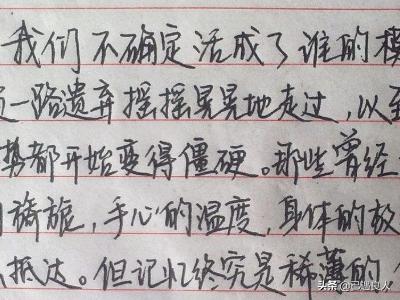 我们不确定活成了谁的模
一路遗弃摇摇晃晃地走过,以至
势都开始变得僵硬。那些曾经
旖旎,手心的温度,身体的放
抵达。但记忆终究是稀薄的
头条@已遇良人